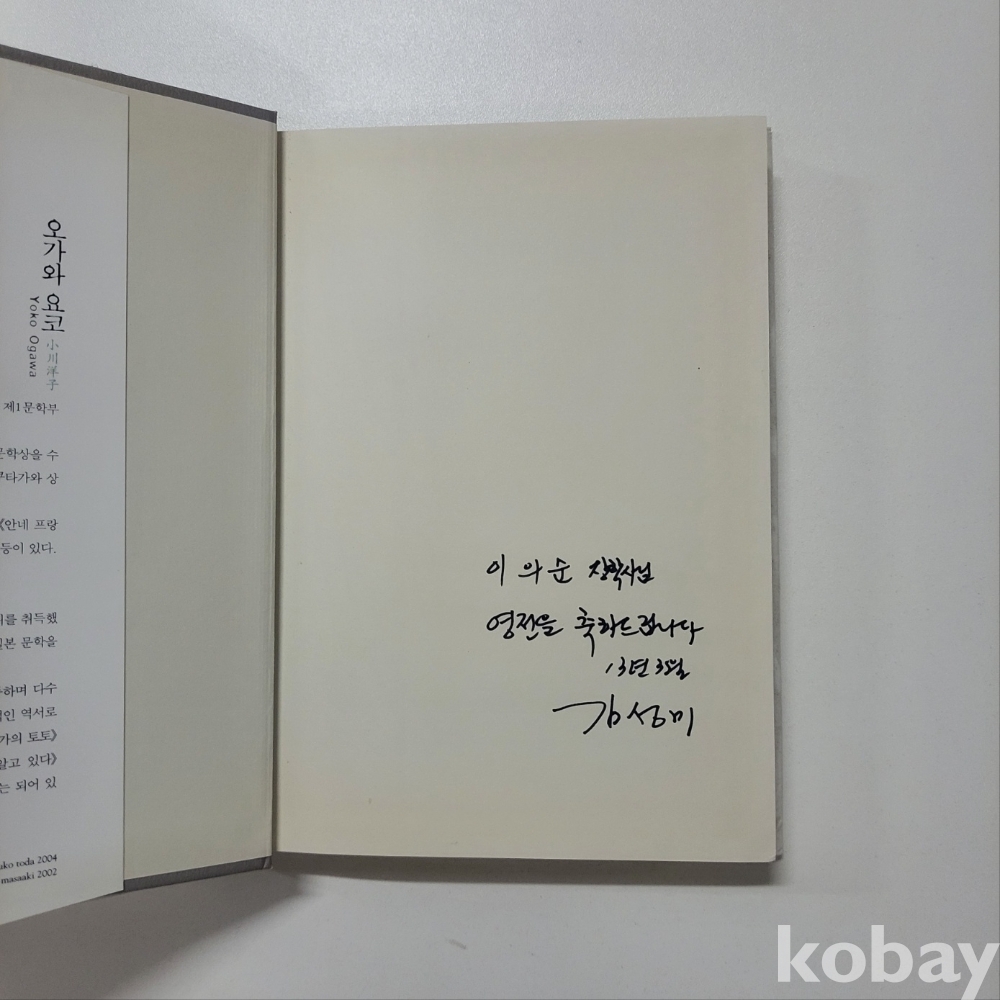 오가와 요코
小川洋子
Yoko Ogawa
제1문학부
문학상을 수
쿠타가와 상
《안네 프랑
등이 있다.
위를 취득했
일본 문학을
하며 다수
인 역서로
가의 토토》
알고 있다》
는 되어 있
ako toda 2004
masaaki 2002
이 의순 장학사님
영전을 축하드립니다
13년 3월
김성미
kobay